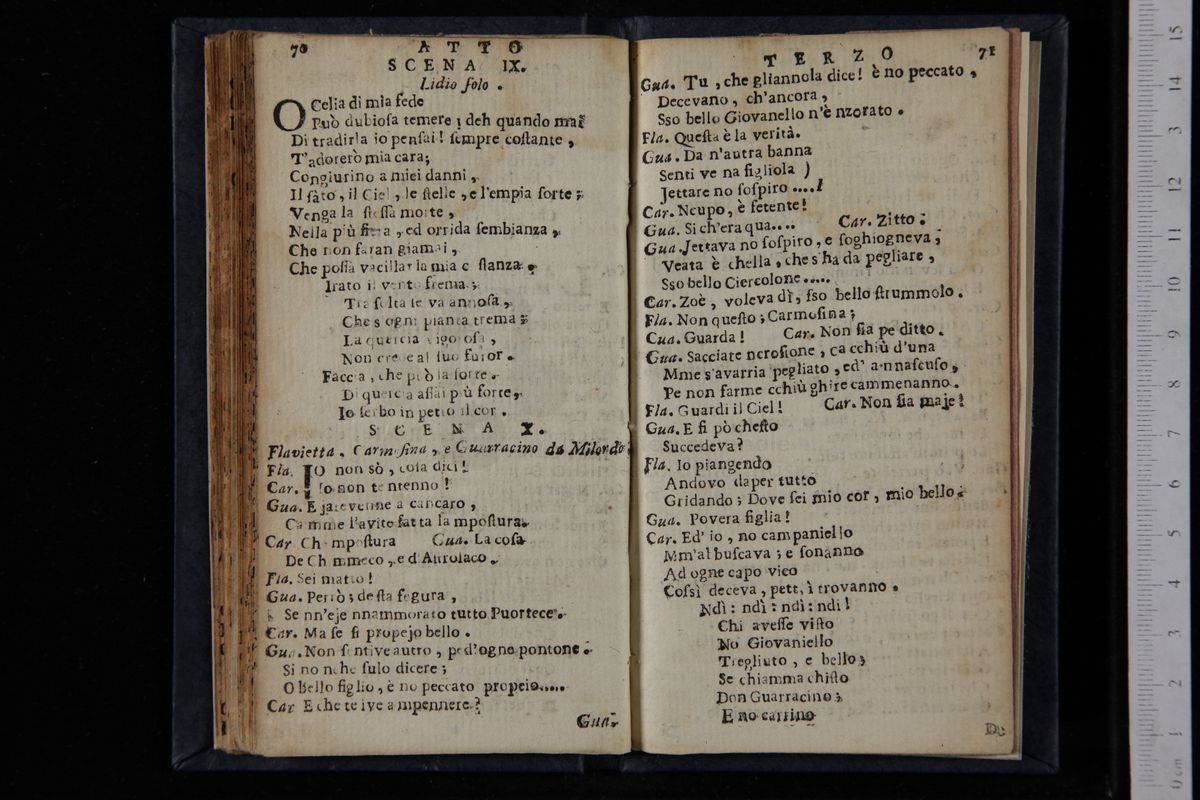 70 ATTO
SCENA IX.
Lidio solo.
O Celia di mia fede
Può dubiosa temere; deh quando mai
Di tradirla io pensai! sempre costante,
T'adorerò mia cara;
Congiurino a miei danni,
Il fato, il Ciel, le stelle, e l'empia sorte;
Venga la stessa morte,
Nella più fiera, ed orrida sembianza,
Che non faran giamai,
Che possa vacillar la mia c stanza.
Irato il vento frema;
Tra folta selva annosa,
Che s'ogni pianta trema;
La quercia vigorosa,
Non crede al suo furor.
Faccia, che può la sorte.
Di quercia assai più forte,
Io serbo in petto il cor.
SCENA X.
Flavietta, Carmosina, e Guarracino da Milordo
Fla. IO non sò, cosa dici!
Car. Io non te ntenno!
Gua. E jatevenne a cancaro,
Ca mme l'avite fatta la mpostura.
Car Ch mpostura Gua. La cosa
De Ch mmeco, e d'Auroiaco.
Fla. Sei matto!
Gua. Perrò; desta fegura,
Se nn'eje nnammorato tutto Puortece.
Car. Ma se si propejo bello.
Gua. Non sentive autro, ped'ogne pontone.
Si no nche sulo dicere;
O bello figlio, è no peccato propeio.....
Car E che te ive a mpennere?
Gua.
TERZO 71
Gua. Tu, che gliannola dice! è no peccato,
Decevano, ch'ancora,
Sso bello Giovanello n'è nzorato.
Fla. Questa è la verità.
Gua. Da n'autra banna
Senti ve na figliola )
Jettare no sospiro ....!
Car. Ncupo, è fetente!
Gua. Si ch'era qua.... Car. Zitto.
Gua. Jettava no sospiro, e soghiogneva;
Veata è chella, che s'ha da pegliare,
Sso bello Ciercolone.....
Car. Zoè, voleva dì, sso bello strummolo.
Fla. Non questo; Carmosina;
Cua. Guarda! Car. Non sia pe ditto.
Gua. Sacciate ncrosione, ca cchiù d'una
Mme s'avarria pegliato, ed' annascuso,
Pe non farme cchiù ghire cammenanno.
Fla. Guardi il Ciel! Car. Non sia maje!
Gua. E si pò chesto
Succedeva?
Fla. Io piangendo
Andovo daper tutto
Gridando; Dove sei mio cor, mio bello.
Gua. Povera figlia!
Car. Ed' io, no campaniello
Mm'albuscava; e sonanno
Ad ogne capo vico
Cossì deceva, pett, ì trovanno.
Ndì: ndì: ndì: ndì!
Chi avesse visto
No Giovaniello
Tregliuto, e bello;
Se chiamma chisto
Don Guarracino;
E no carrino
De